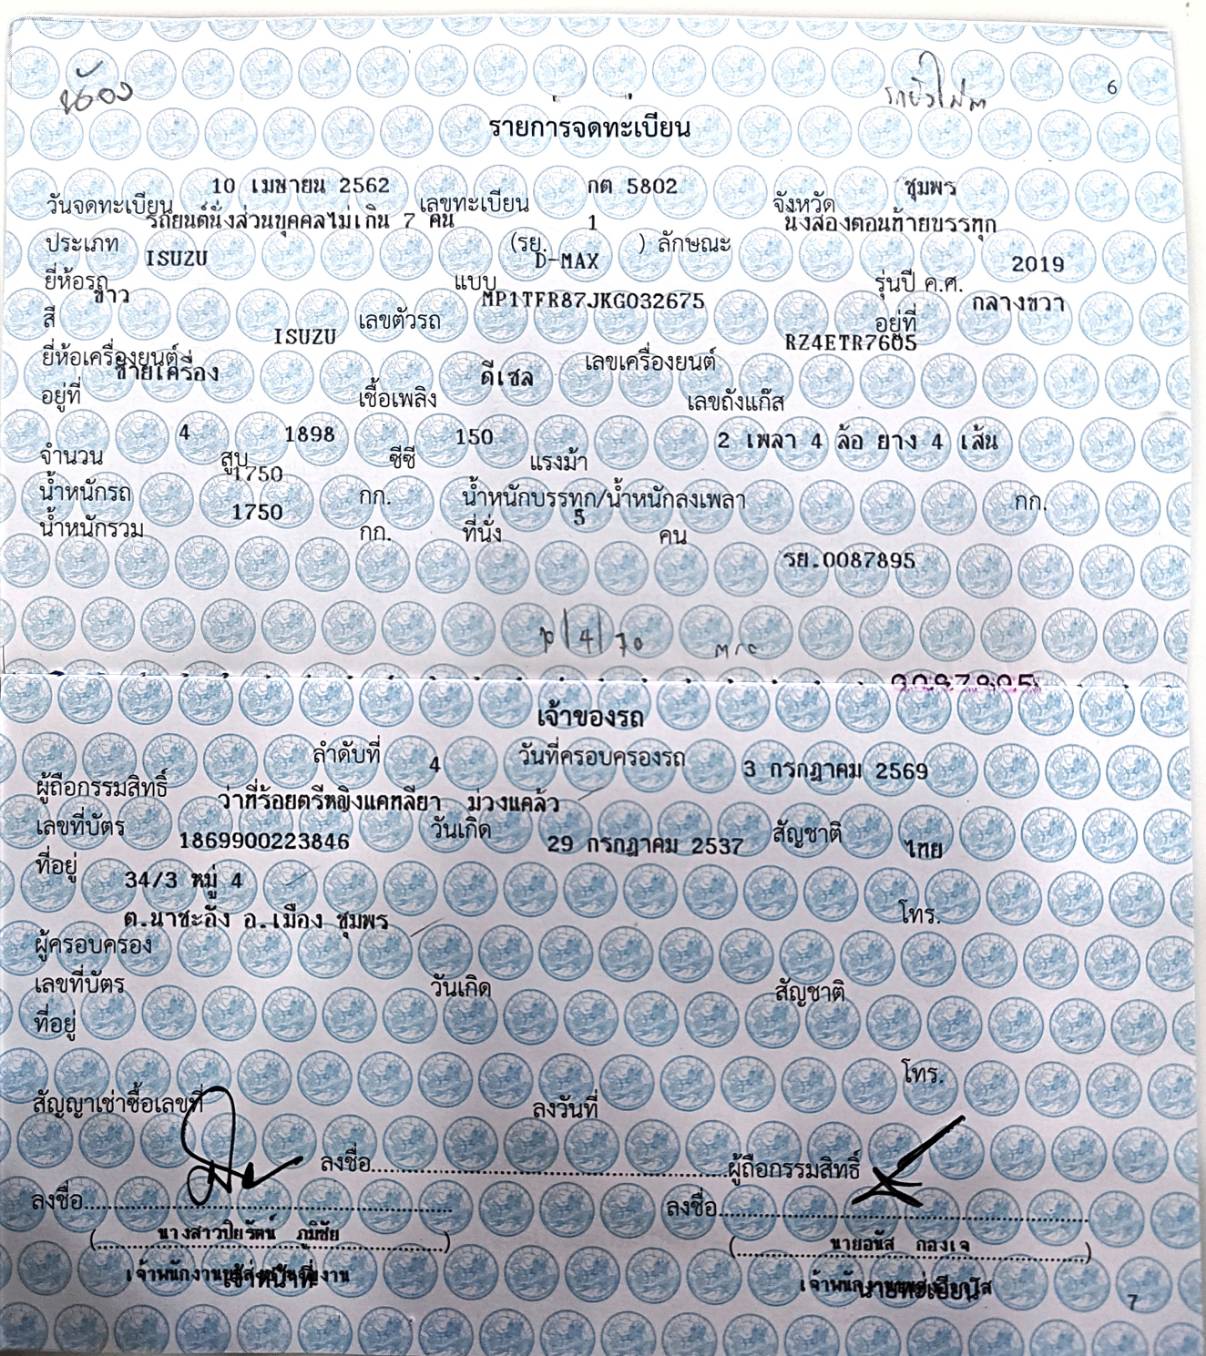 น้อง
6
รายการจดทะเบียน
วันจดทะเบียน 10 เมษายน 2562 เลขทะเบียน กต 5802 จังหวัด ชุมพร
ประเภท รถยนต์นั่งส่วนบุคคลไม่เกิน 7 คน (รย. 1 ) ลักษณะ นั่งสองตอนท้ายบรรทุก
ยี่ห้อรถ ISUZU แบบ D-MAX รุ่นปี ค.ศ. 2019
สี ขาว เลขตัวรถ MP1TFR87JKG032675 อยู่ที่ กลางขวา
ยี่ห้อเครื่องยนต์ ISUZU เลขเครื่องยนต์ RZ4ETR7605
อยู่ที่ ซ้ายเครื่อง เชื้อเพลิง ดีเซล เลขถังแก๊ส
จำนวน 4 สูบ 1898 ซีซี 150 แรงม้า 2 เพลา 4 ล้อ ยาง 4 เส้น
น้ำหนักรถ 1750 กก. น้ำหนักบรรทุก/น้ำหนักลงเพลา กก.
น้ำหนักรวม 1750 กก. ที่นั่ง 5 คน
รย.0087895
0087895
เจ้าของรถ
ลำดับที่ 4 วันที่ครอบครองรถ 3 กรกฎาคม 2569
ผู้ถือกรรมสิทธิ์ ว่าที่ร้อยตรีหญิงแคทลียา ม่วงแคล้ว
เลขที่บัตร 1869900223846 วันเกิด 29 กรกฎาคม 2537 สัญชาติ ไทย
ที่อยู่ 34/3 หมู่ 4
ต.นาชะอัง อ.เมือง ชุมพร โทร.
ผู้ครอบครอง
เลขที่บัตร วันเกิด สัญชาติ
ที่อยู่
โทร.
สัญญาเช่าซื้อเลขที่ ลงวันที่
ลงชื่อ ผู้ถือกรรมสิทธิ์
ลงชื่อ ลงชื่อ
(นางสาวปิยรัตน์ ภูมิชัย) (นายอนัส กองเจ)
เจ้าหน้าที่ นายทะเบียน
7